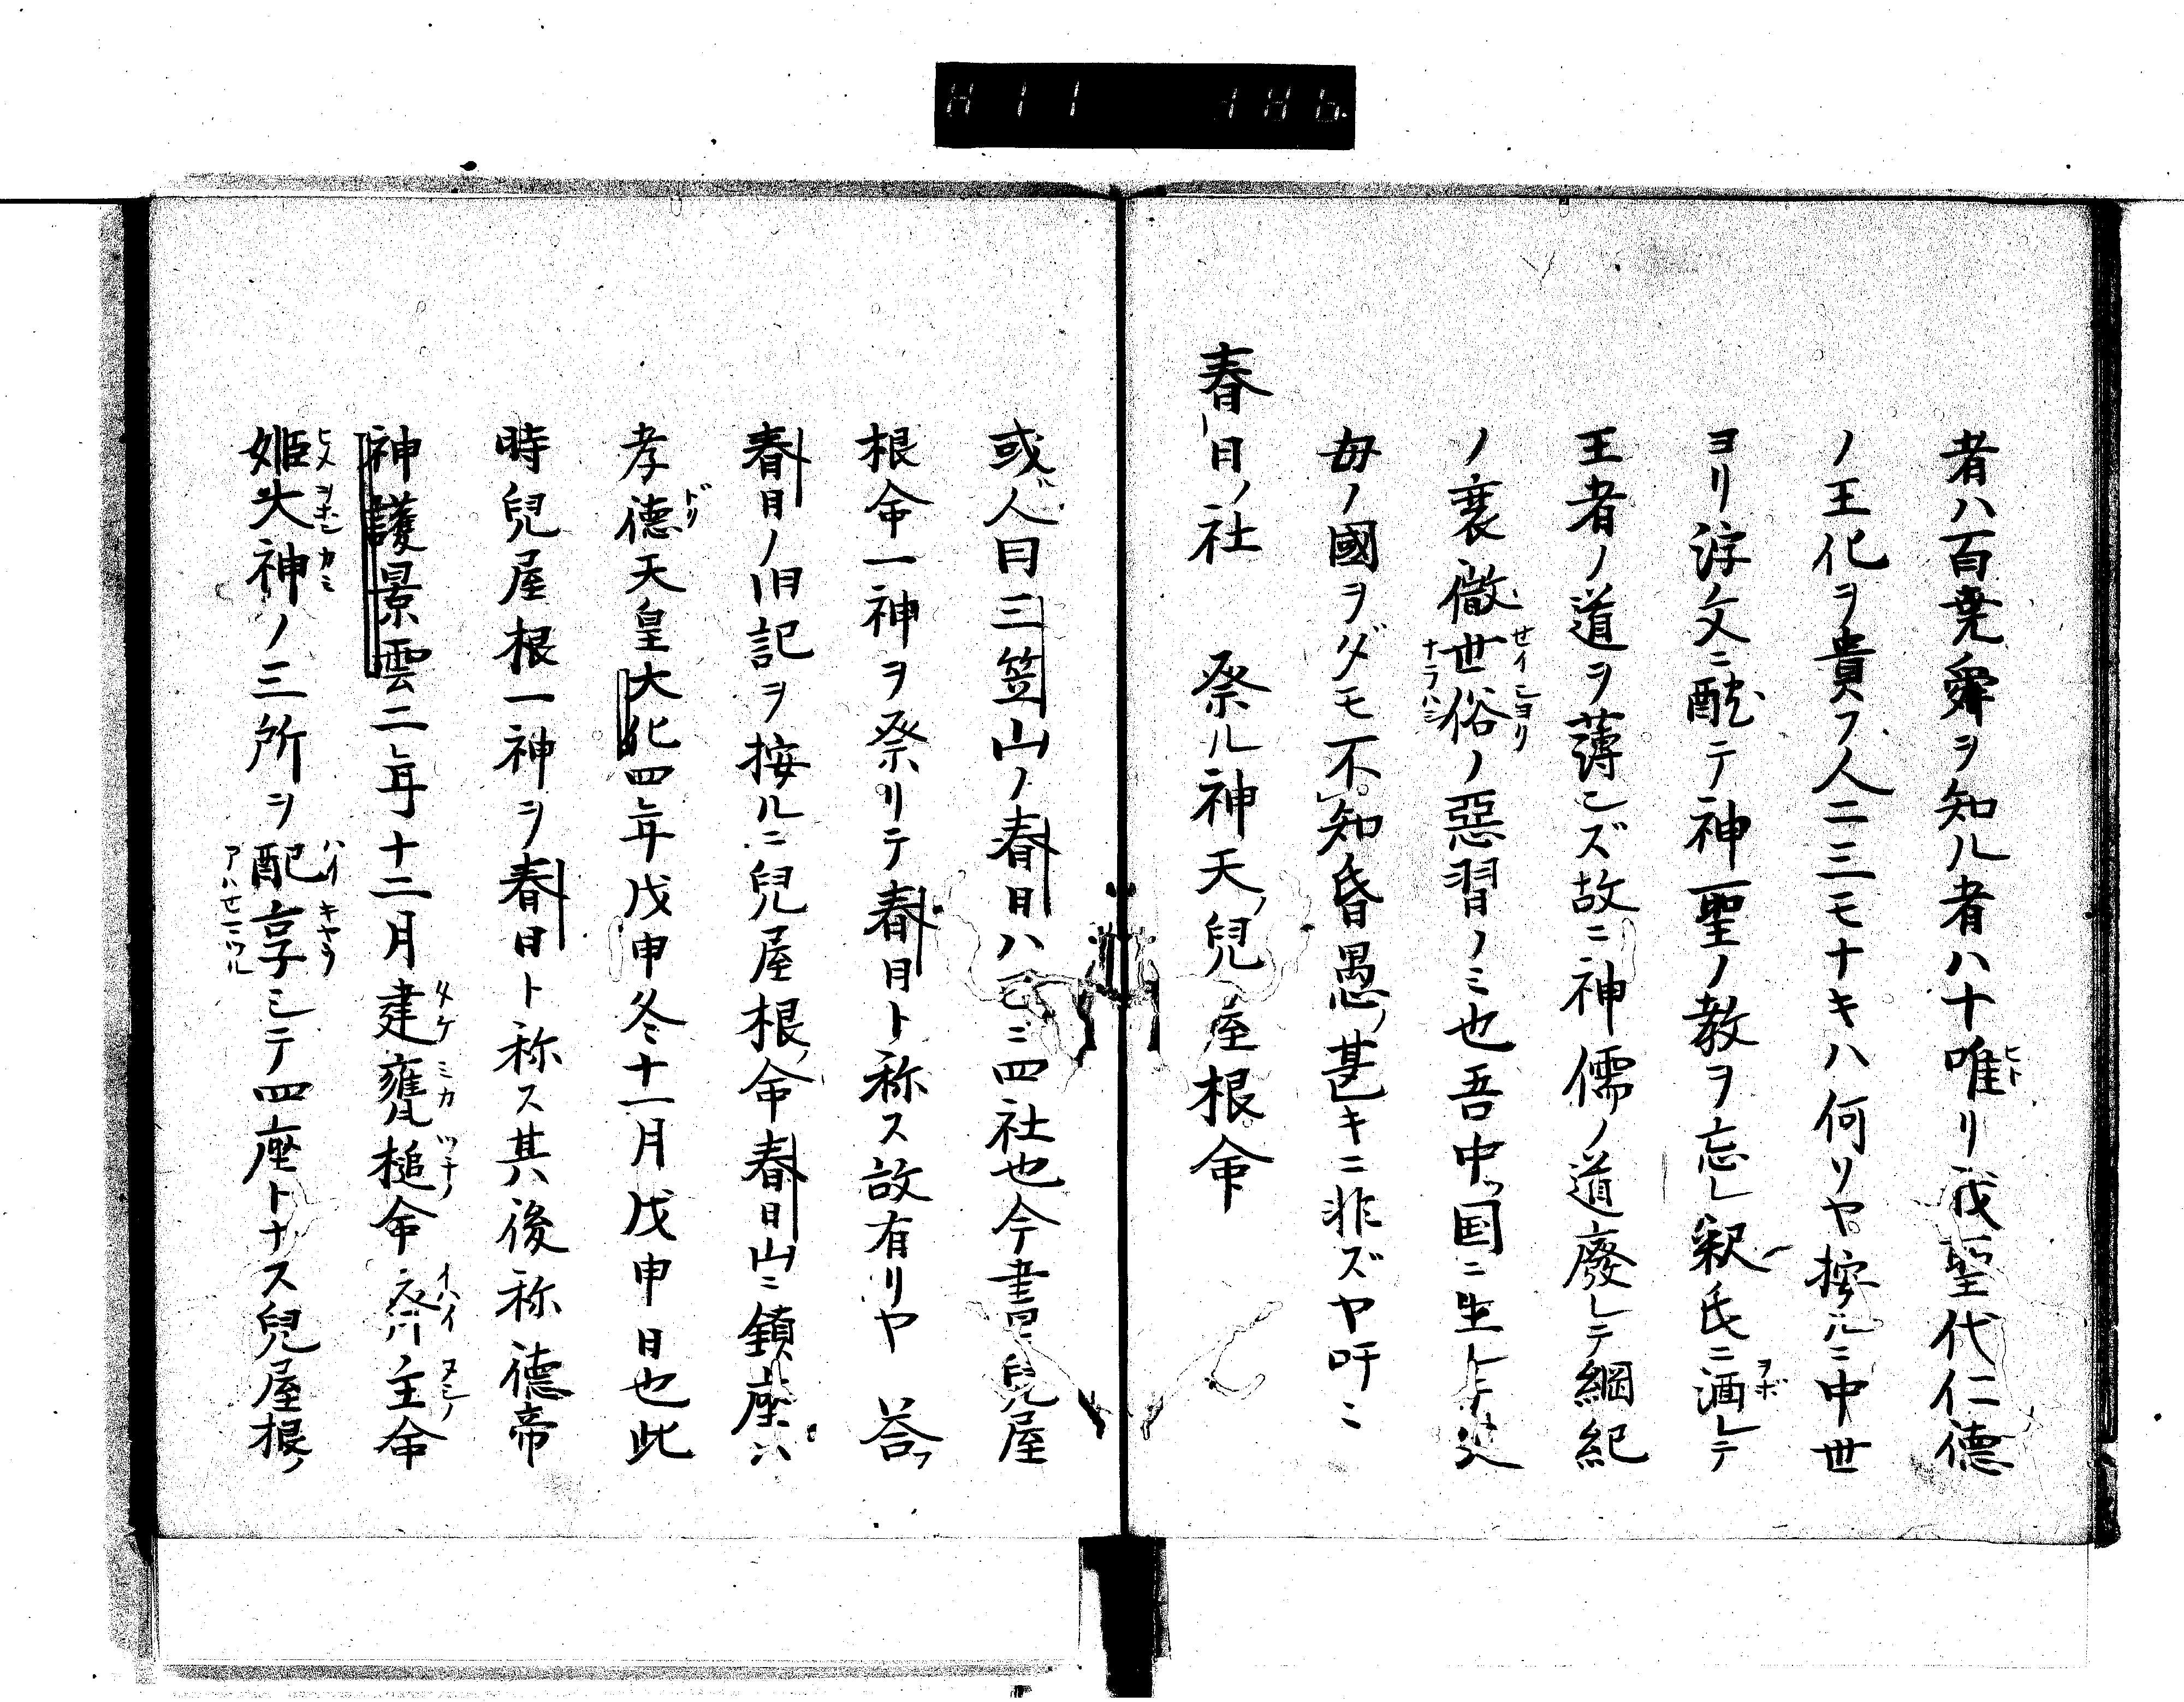 者ハ百尭舜ヲ知ル者ハ十唯リ我聖代仁徳
ノ王化ヲ貴フ人二三モナキハ何ソヤ按ルニ中世
ヨリ浮文ニ酖テ神聖ノ教ヲ忘レ釈氏ニ湎レテ
王者ノ道ヲ薄ンズ故ニ神儒ノ道廢レテ綱紀
ノ衰微世俗ノ惡習ノミ也吾中国ニ生レナ
毎ノ國ヲダモ不知昏愚ノ甚キニ非ズヤ吁ニ
春日ノ社 祭ル神天ノ兒屋根命
或人曰三笠山ノ春日ハモニ四社也今書ニ兒屋
根命一神ヲ祭リテ春日ト称ス故有リヤ 荅フ
春日ノ旧記ヲ按ルニ兒屋根ノ命春日山ニ鎮座ハ
孝徳天皇大化四年戊申冬十一月戊申日也此
時兒屋根一神ヲ春日ト称ス其後称徳帝
神護景雲二年十二月建甕槌命斎主命
姫大神ノ三所ヲ配享シテ四座トナス兒屋根ノ